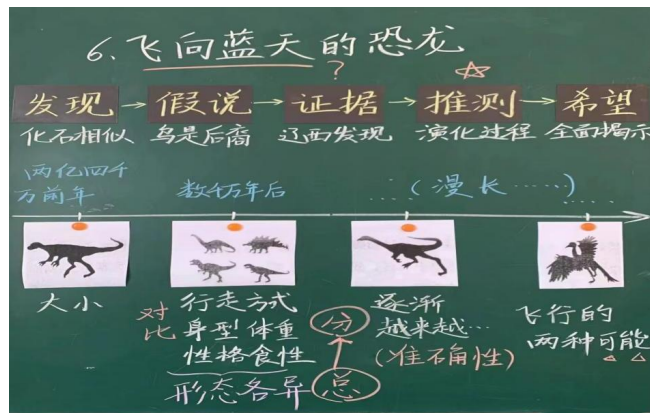 6、飞向蓝天的恐龙
?
发现→假说→证据→推测→希望
化石相似 鸟是后裔 辽西发现 演化过程 全面揭示
两亿四千
万前年 数千万年后 ……(漫长……)……
大小
对比
行走方式
身型体重
性格食性
形态各异
分
总
逐渐
越来越…
(准确性)
飞行的
两种可能